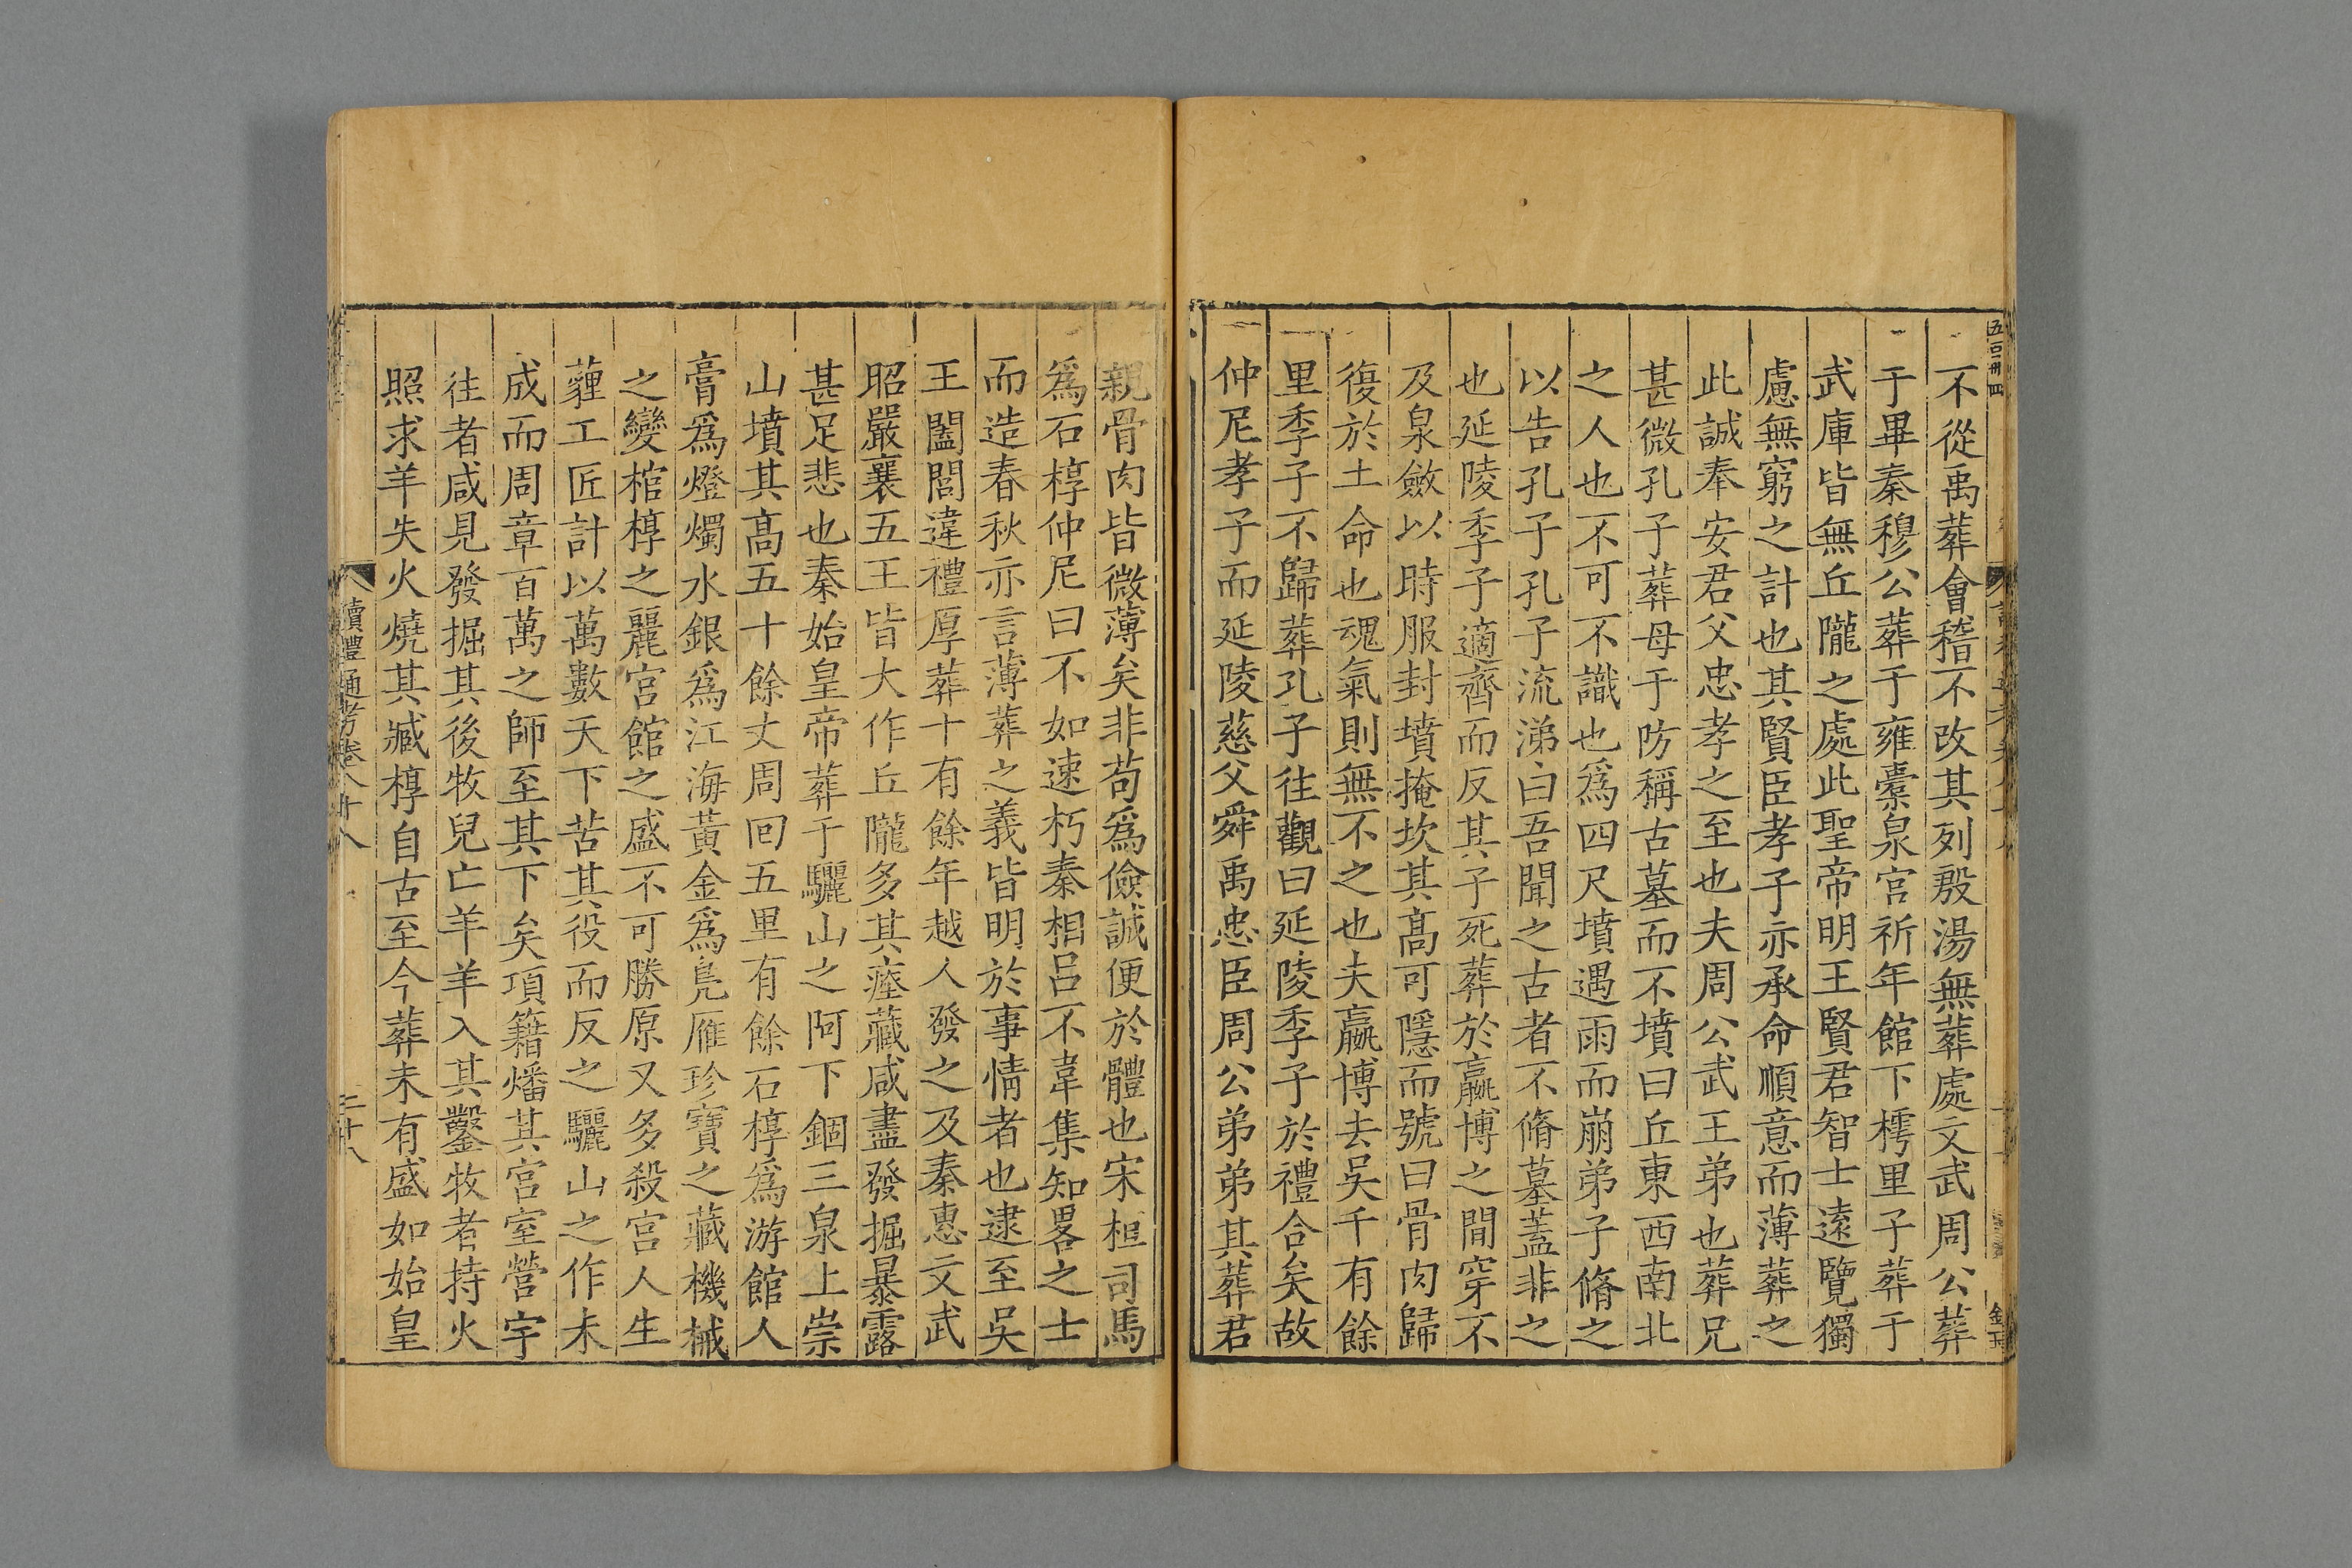 五百卌四
不從禹葬會稽不改其列殷湯無葬處文武周公葬
于畢秦穆公葬于雍橐泉宮祈年館下樗里子葬于
武庫皆無丘隴之處此聖帝明王賢君智士逺覽獨
慮無窮之計也其賢臣孝子亦承命順意而薄葬之
此誠奉安君父忠孝之至也夫周公武王弟也葬兄
甚微孔子葬母于防稱古墓而不墳曰丘東西南北
之人也不可不識也爲四尺墳遇雨而崩弟子脩之
以告孔子孔子流涕曰吾聞之古者不脩墓蓋非之
也延陵季子適齊而反其子死葬於嬴博之間穿不
及泉斂以時服封墳掩坎其髙可隱而號曰骨肉歸
復於土命也魂氣則無不之也夫嬴博去吳千有餘
里季子不歸葬孔子往觀曰延陵季子於禮合矣故
仲尼孝子而延陵慈父舜禹忠臣周公弟弟其葬君
親骨肉皆微薄矣非苟爲儉誠便於體也宋桓司馬
爲石椁仲尼曰不如速朽秦相吕不韋集知畧之士
而造春秋亦言薄葬之義皆明於事情者也逮至吳
王闔閭違禮厚葬十有餘年越人發之及秦惠文武
昭嚴襄五王皆大作丘隴多其瘞藏咸盡發掘暴露
甚足悲也秦始皇帝葬于驪山之阿下錮三泉上崇
山墳其髙五十餘丈周回五里有餘石椁爲游館人
膏爲燈燭水銀爲江海黃金爲鳧雁珍寶之藏機械
之變棺椁之麗宮館之盛不可勝原又多殺宮人生
薶工匠計以萬數天下苦其役而反之驪山之作未
成而周章百萬之師至其下矣項籍燔其宮室營宇
往者咸見發掘其後牧兒亡羊羊入其鑿牧者持火
照求羊失火燒其臧椁自古至今葬未有盛如始皇
讀禮通考卷八十八
二十八